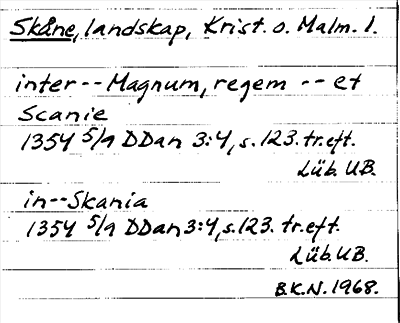 Skåne, landskap, Krist. o. Malm. l.
inter -- Magnum, regem -- et
Scanie
1354 5/1 DDan 3:4, s. 123. tr. eft.
Lüb. UB.
in -- Skania
1354 5/1 DDan 3:4, s. 123. tr. eft.
Lüb. UB.
B.K.N. 1968.